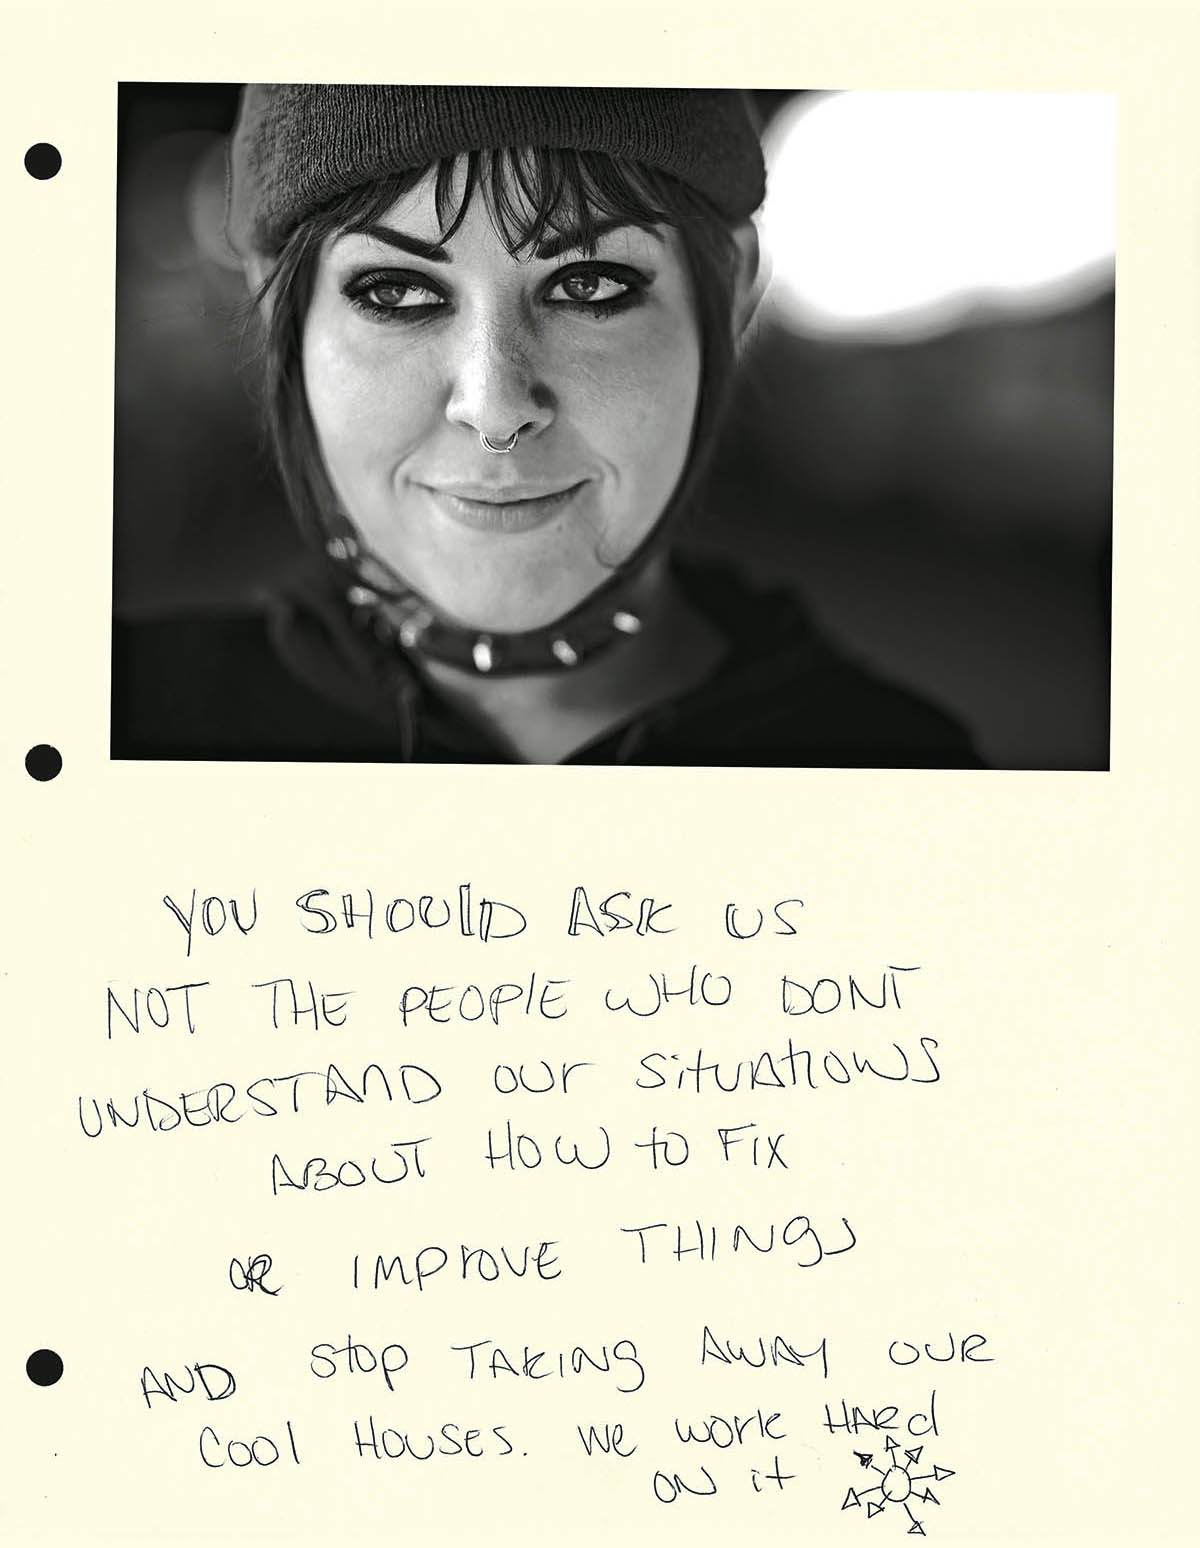 YOU SHOULD ASK US
NOT THE PEOPLE WHO DONT
UNDERSTAND our SituAtioNS
ABOUT HOW to FIX
OR IMProVE THINgs
AND stop TAKINg AWAY OUR
Cool HOUSES. We work HARd
ON it